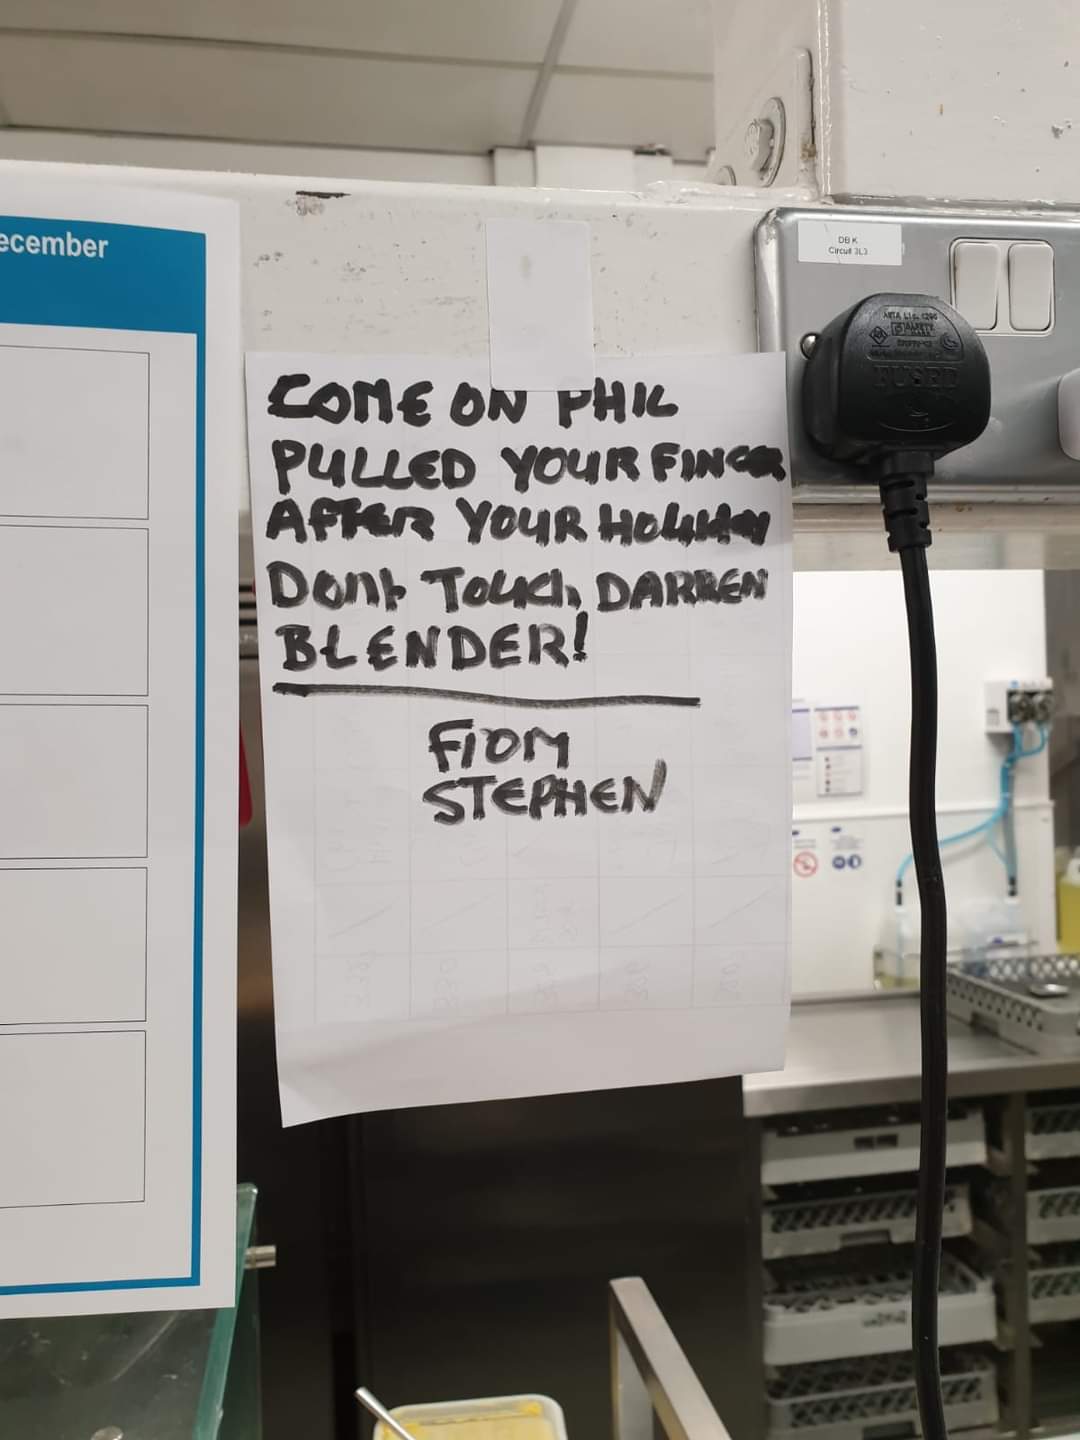 ecember
DB K
Circuit 3L3
FUSED
COME ON PHIL
PULLED YOUR FINGER
AFTER YOUR HOLIDAY
DONt TOUCH DARREN
BLENDER!
FROM
STEPHEN